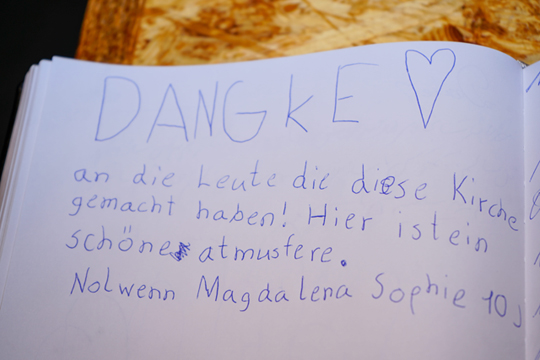 DANGKE
an die Leute die diese Kirche
gemacht haben! Hier ist ein
schöne atmusfere.
Nolwenn Magdalena Sophie 10J